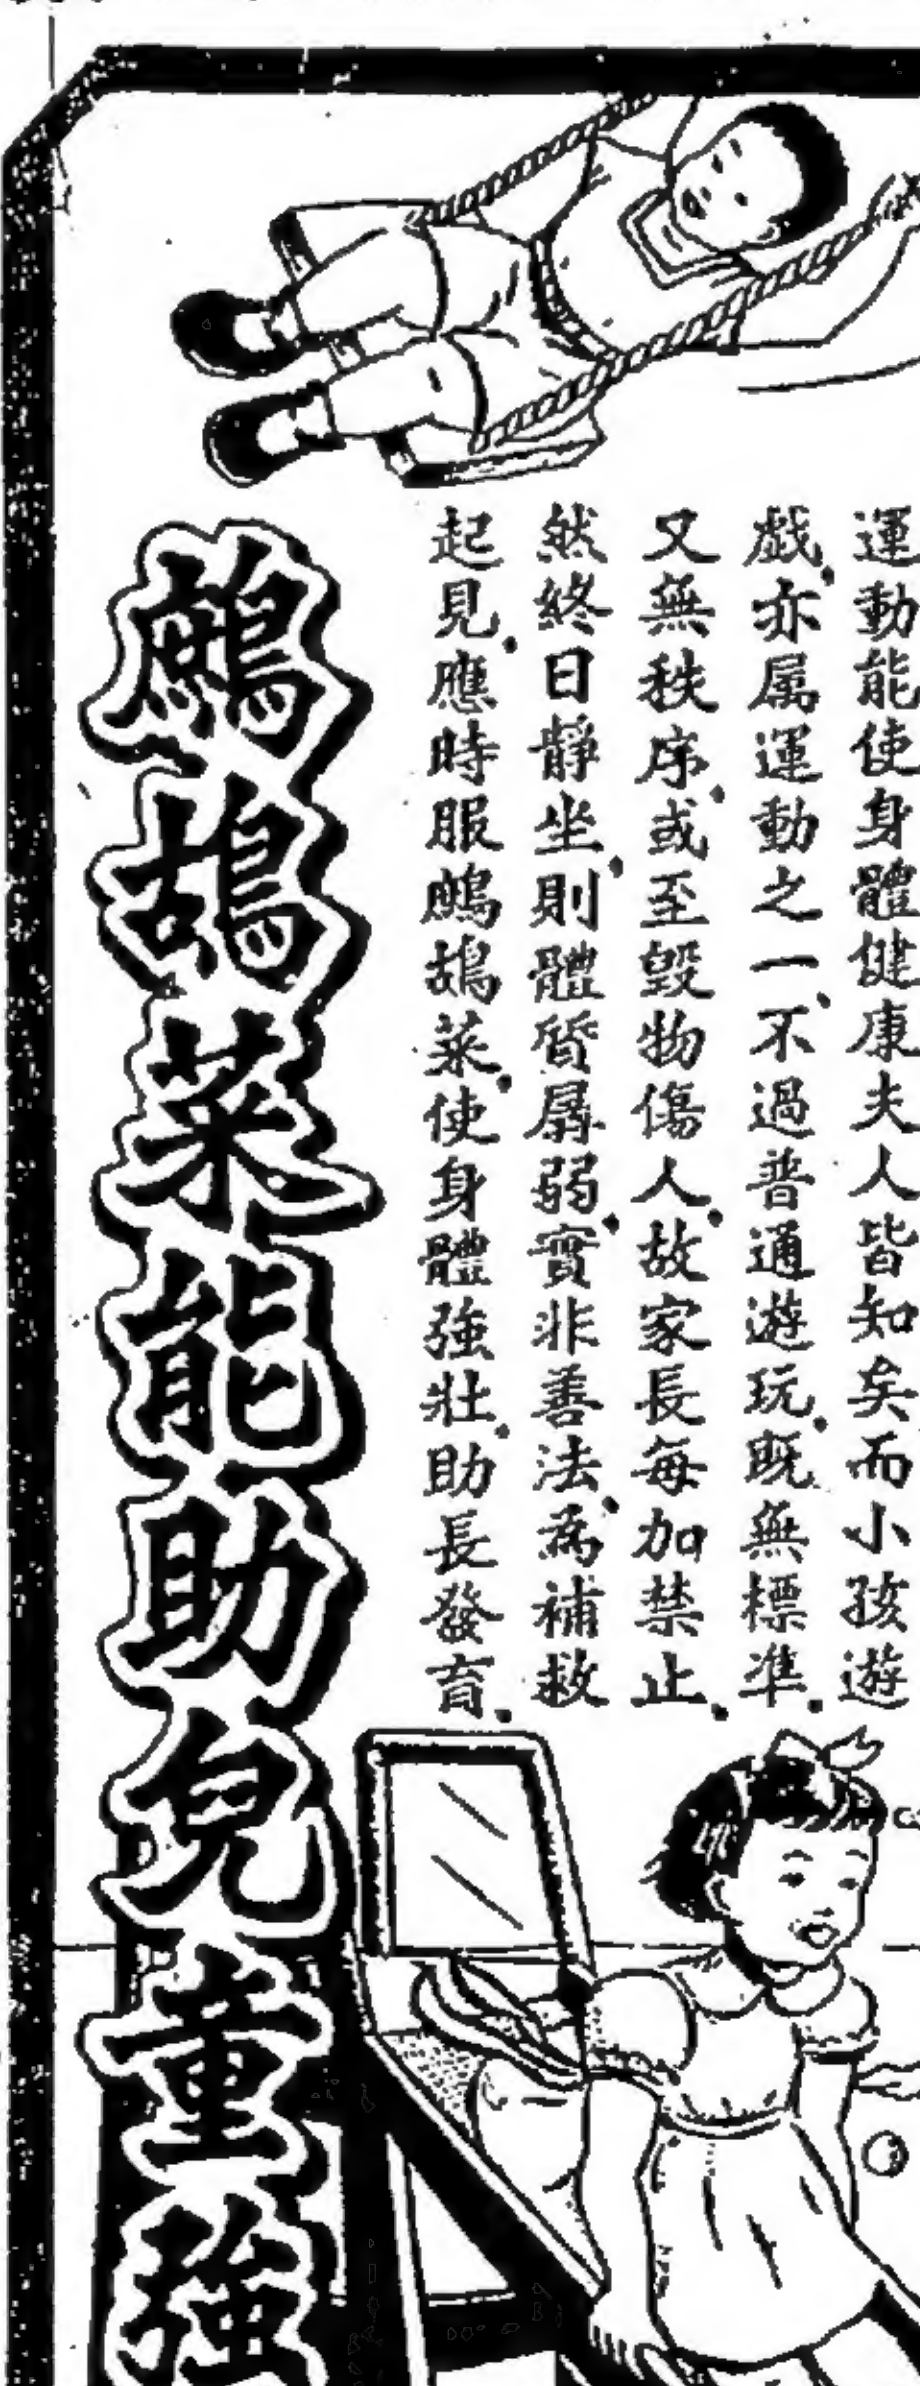 運動能使身體健康夫人皆知矣而小孩遊
戲、亦属運動之一、不過普通遊玩、既無標準、
又無秩序、或至毀物傷人、故家長每加禁止、
然終日靜坐、則體質孱弱、實非善法、為補救
起見、應時服鷓鴣菜、使身體強壯、助長發育、
鷓鴣菜能助兒童強